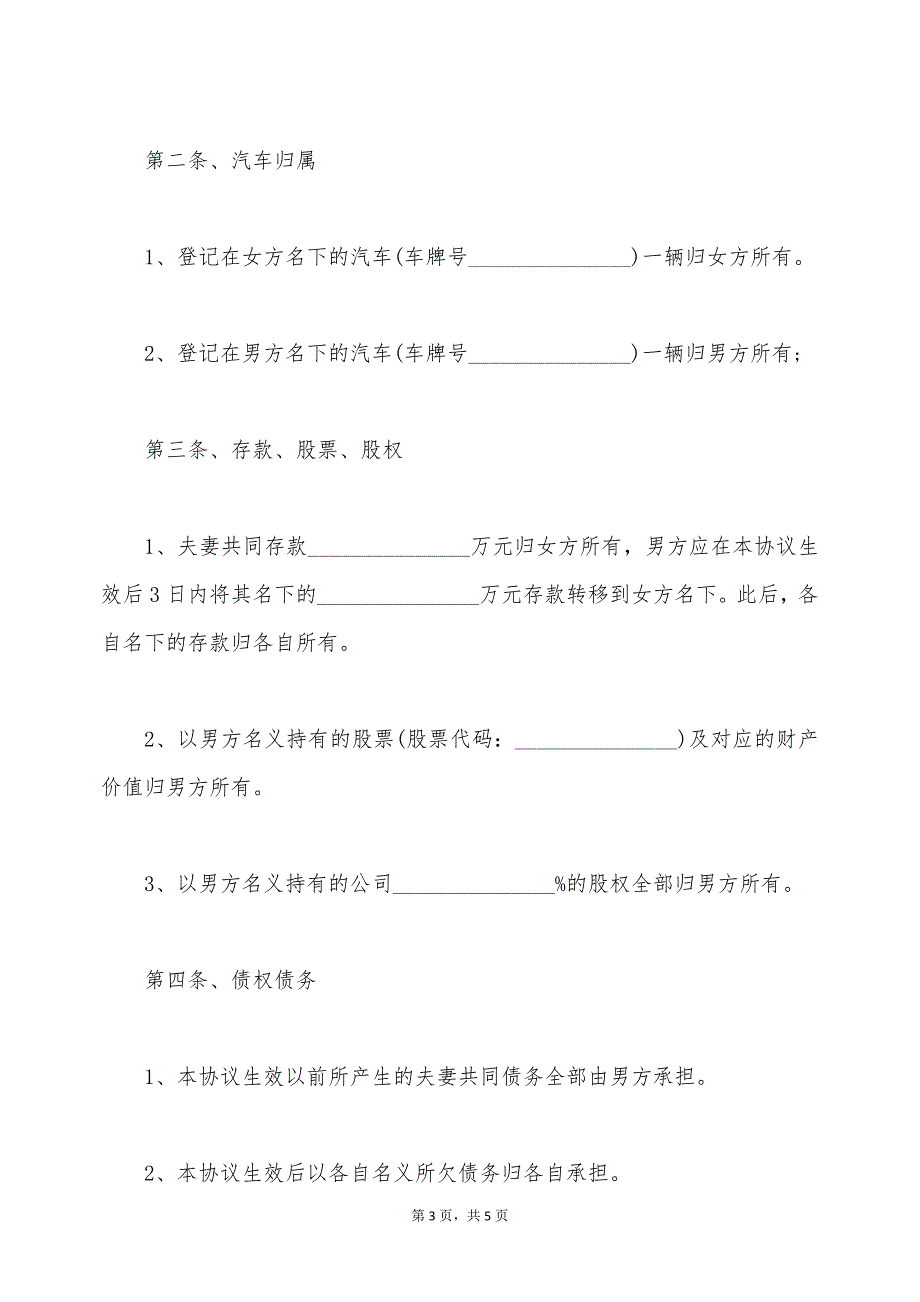 第二条、汽车归属
1、登记在女方名下的汽车(车牌号_______________)一辆归女方所有。
2、登记在男方名下的汽车(车牌号_______________)一辆归男方所有;
第三条、存款、股票、股权
1、夫妻共同存款_______________万元归女方所有，男方应在本协议生
效后3日内将其名下的_______________万元存款转移到女方名下。此后，各
自名下的存款归各自所有。
2、以男方名义持有的股票(股票代码：_______________)及对应的财产
价值归男方所有。
3、以男方名义持有的公司_______________%的股权全部归男方所有。
第四条、债权债务
1、本协议生效以前所产生的夫妻共同债务全部由男方承担。
2、本协议生效后以各自名义所欠债务归各自承担。
第 3 页，共 5 页